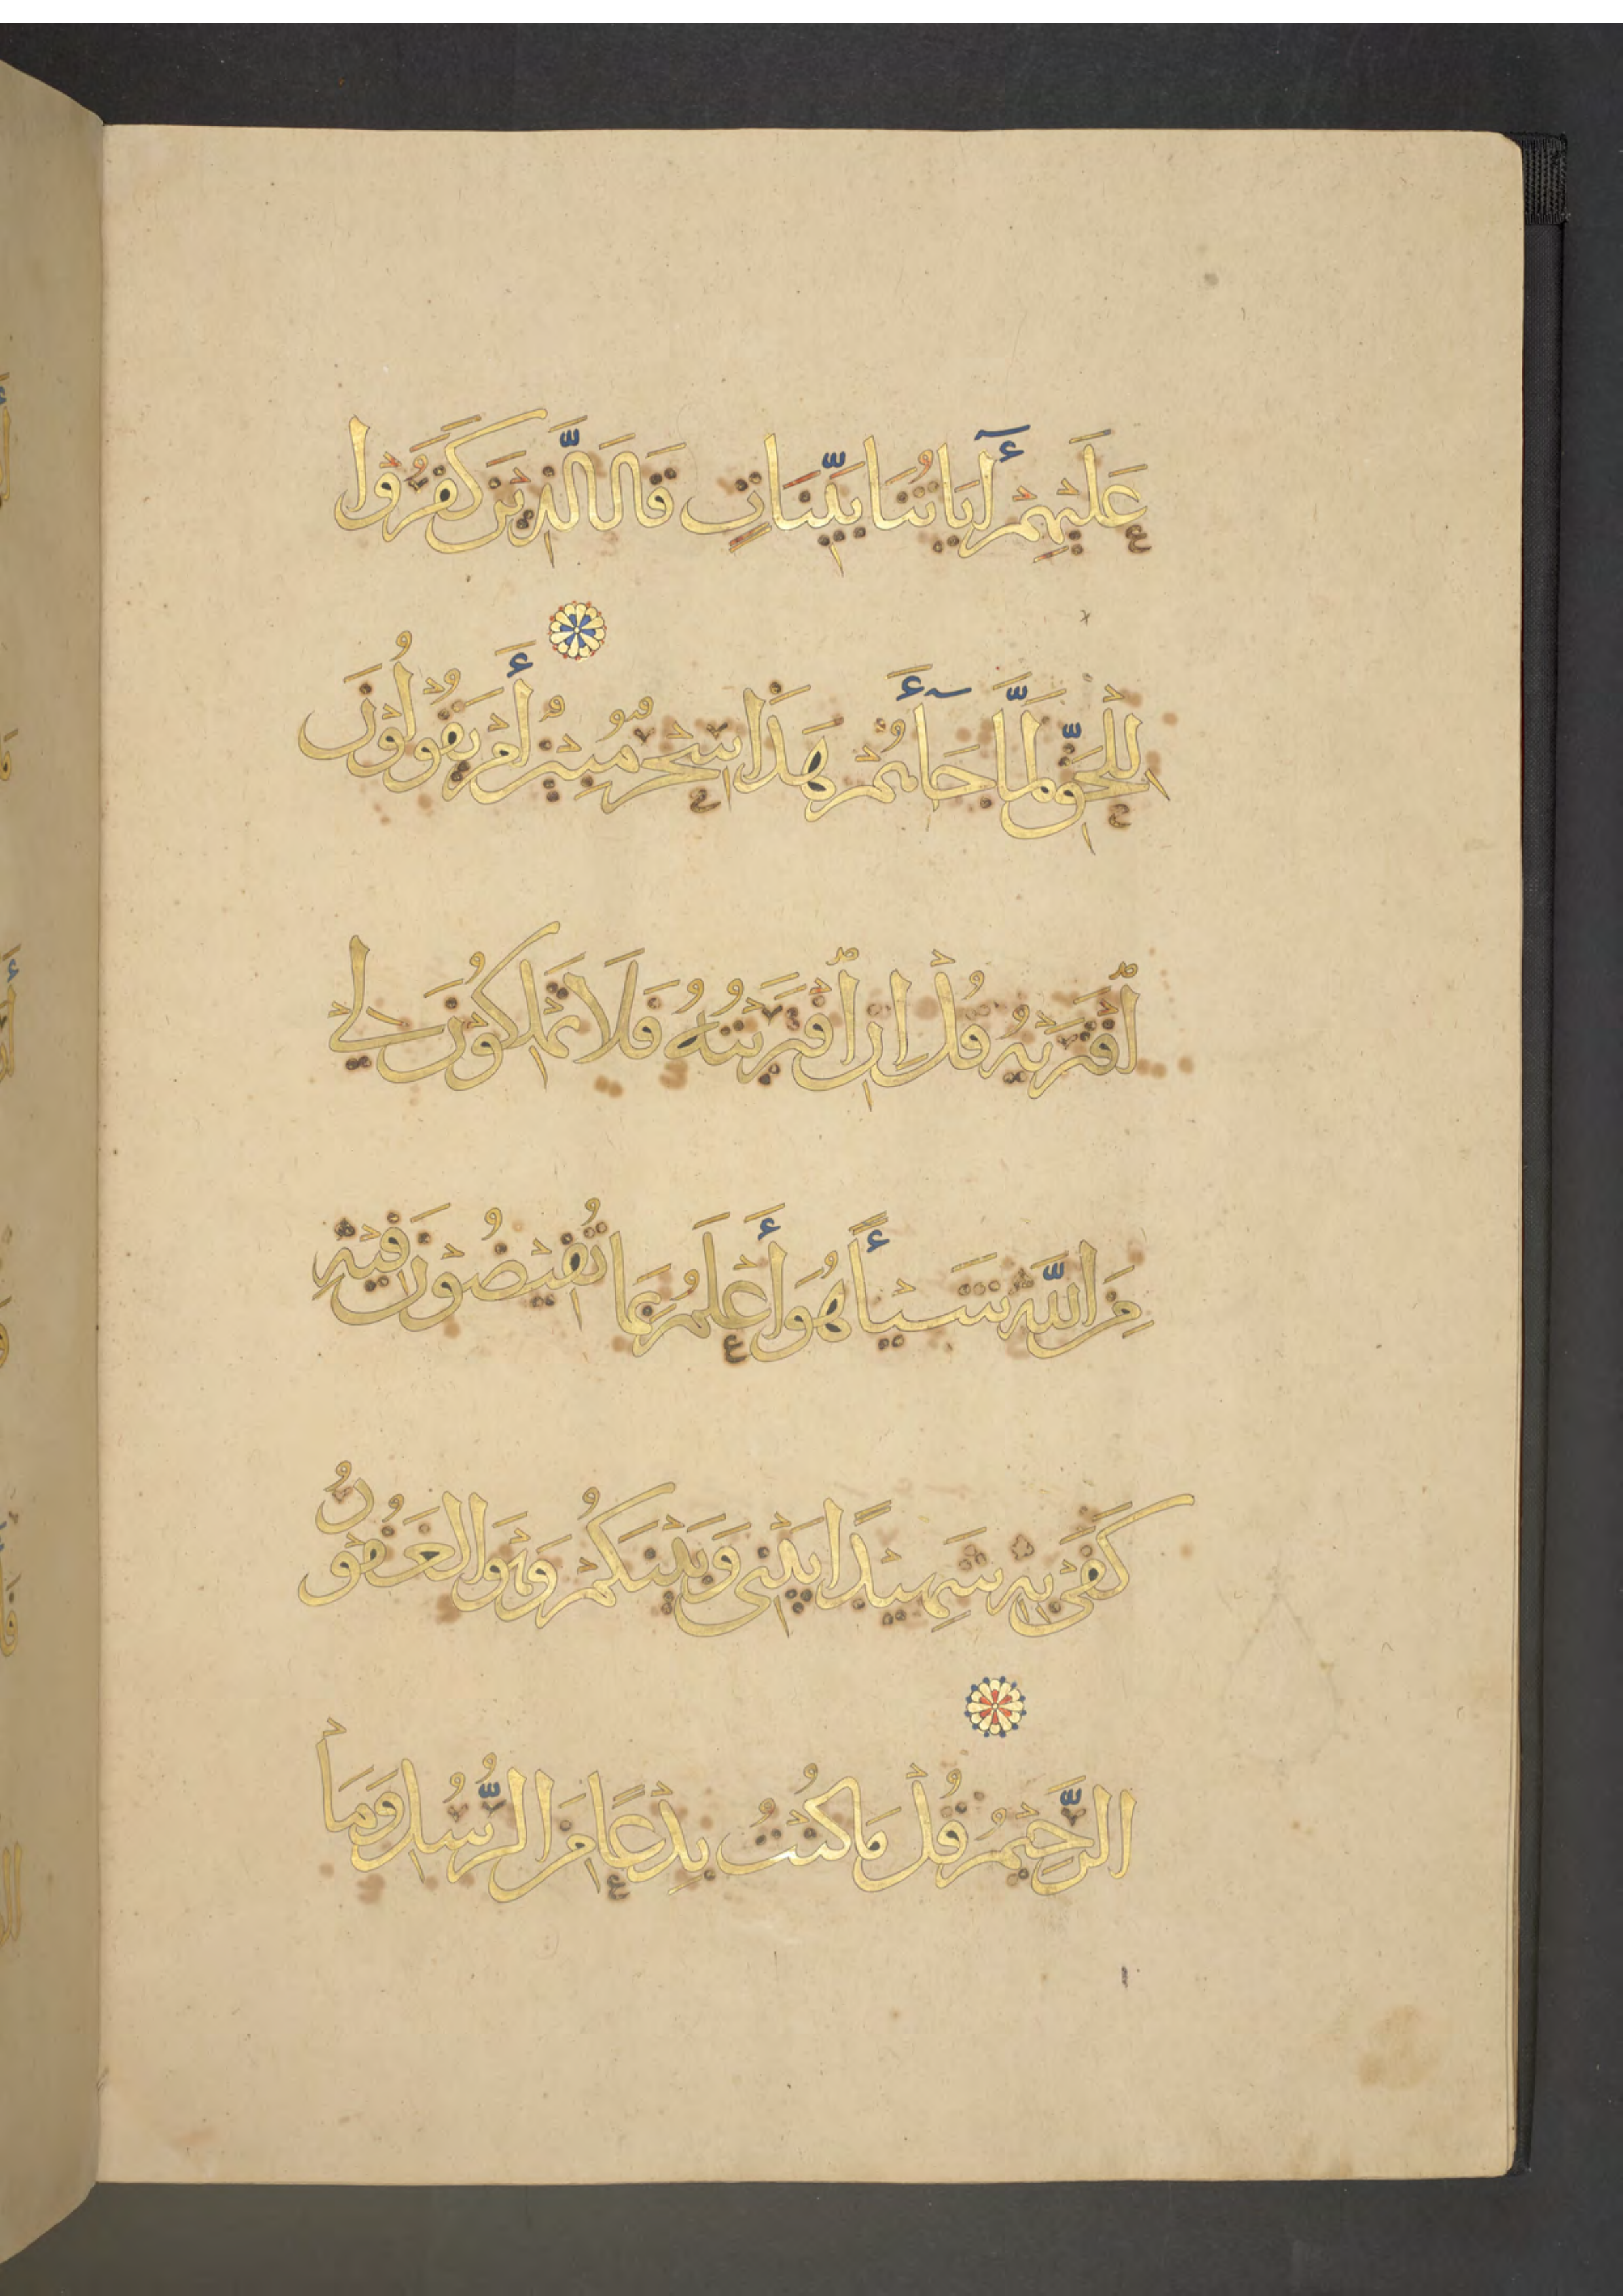 عَلَيْهِمْ أَايَاتُنَا بَيِّنَاتٍ قَالَ الَّذِيْنَ كَفَرُوْا
لِلْحَقِّ لَمَّا جَآءَهُمْ هَذَا سِحْرٌ مُّبِيْنٌ أَمْ يَقُوْلُوْنَ
اْفْتَرَيهُ قُلْ اِنِ اْفْتَرَيْتُهُ فَلَا تَمْلِكُوْنَ لِيْ
مِنَ اللَّهِ شَيْأً هُوَ أَعْلَمُ بِمَا تُفِيْضُوْنَ فِيْهِ
كَفَى بِهِ شَهِيْدًا بَيْنِي وَبَيْنَكُمْ وَهْوَ الْغَفُوْرُ
الرَّحِيْمُ قُلْ مَا كُنْتُ بِدْعًا مِنَ الرُّسُلِ وَمَا